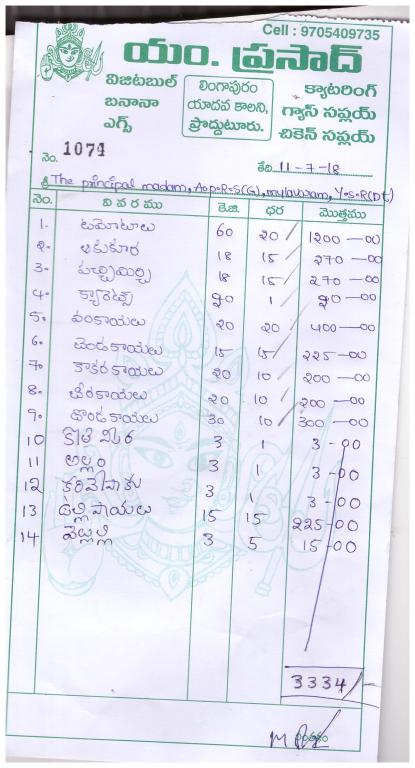 Cell : 9705409735
యం. ప్రసాద్
విజిటబుల్
బనానా
ఎగ్స్
లింగాపురం
యాదవ కాలని,
ప్రొద్దుటూరు.
క్యాటరింగ్
గ్యాస్ సప్లయ్
చికెన్ సప్లయ్
నెం. 1074
తేది 11-7-18
శ్రీ The principal madam, A.P.R.S(G), mylavaram, Y.S.R(Dt)
నెం. వివరము కె.జి. ధర మొత్తము
1. టమోటాలు 60 20 1200-00
2. ఆకుకూర 18 15 270-00
3. పచ్చిమిర్చి 18 15 270-00
4. క్యారెట్స్ 20 1 20-00
5. వంకాయలు 20 20 400-00
6. బెండకాయలు 15 15 225-00
7. కాకరకాయలు 20 10 200-00
8. బీరకాయలు 20 10 200-00
9. దొండకాయలు 30 10 300-00
10 3 1 3-00
11 అల్లం 3 1 3-00
12 కరివేపాకు 3 1 3-00
13 ఉల్లిపాయలు 15 15 225-00
14 వెల్లుల్లి 3 5 15-00
3334/